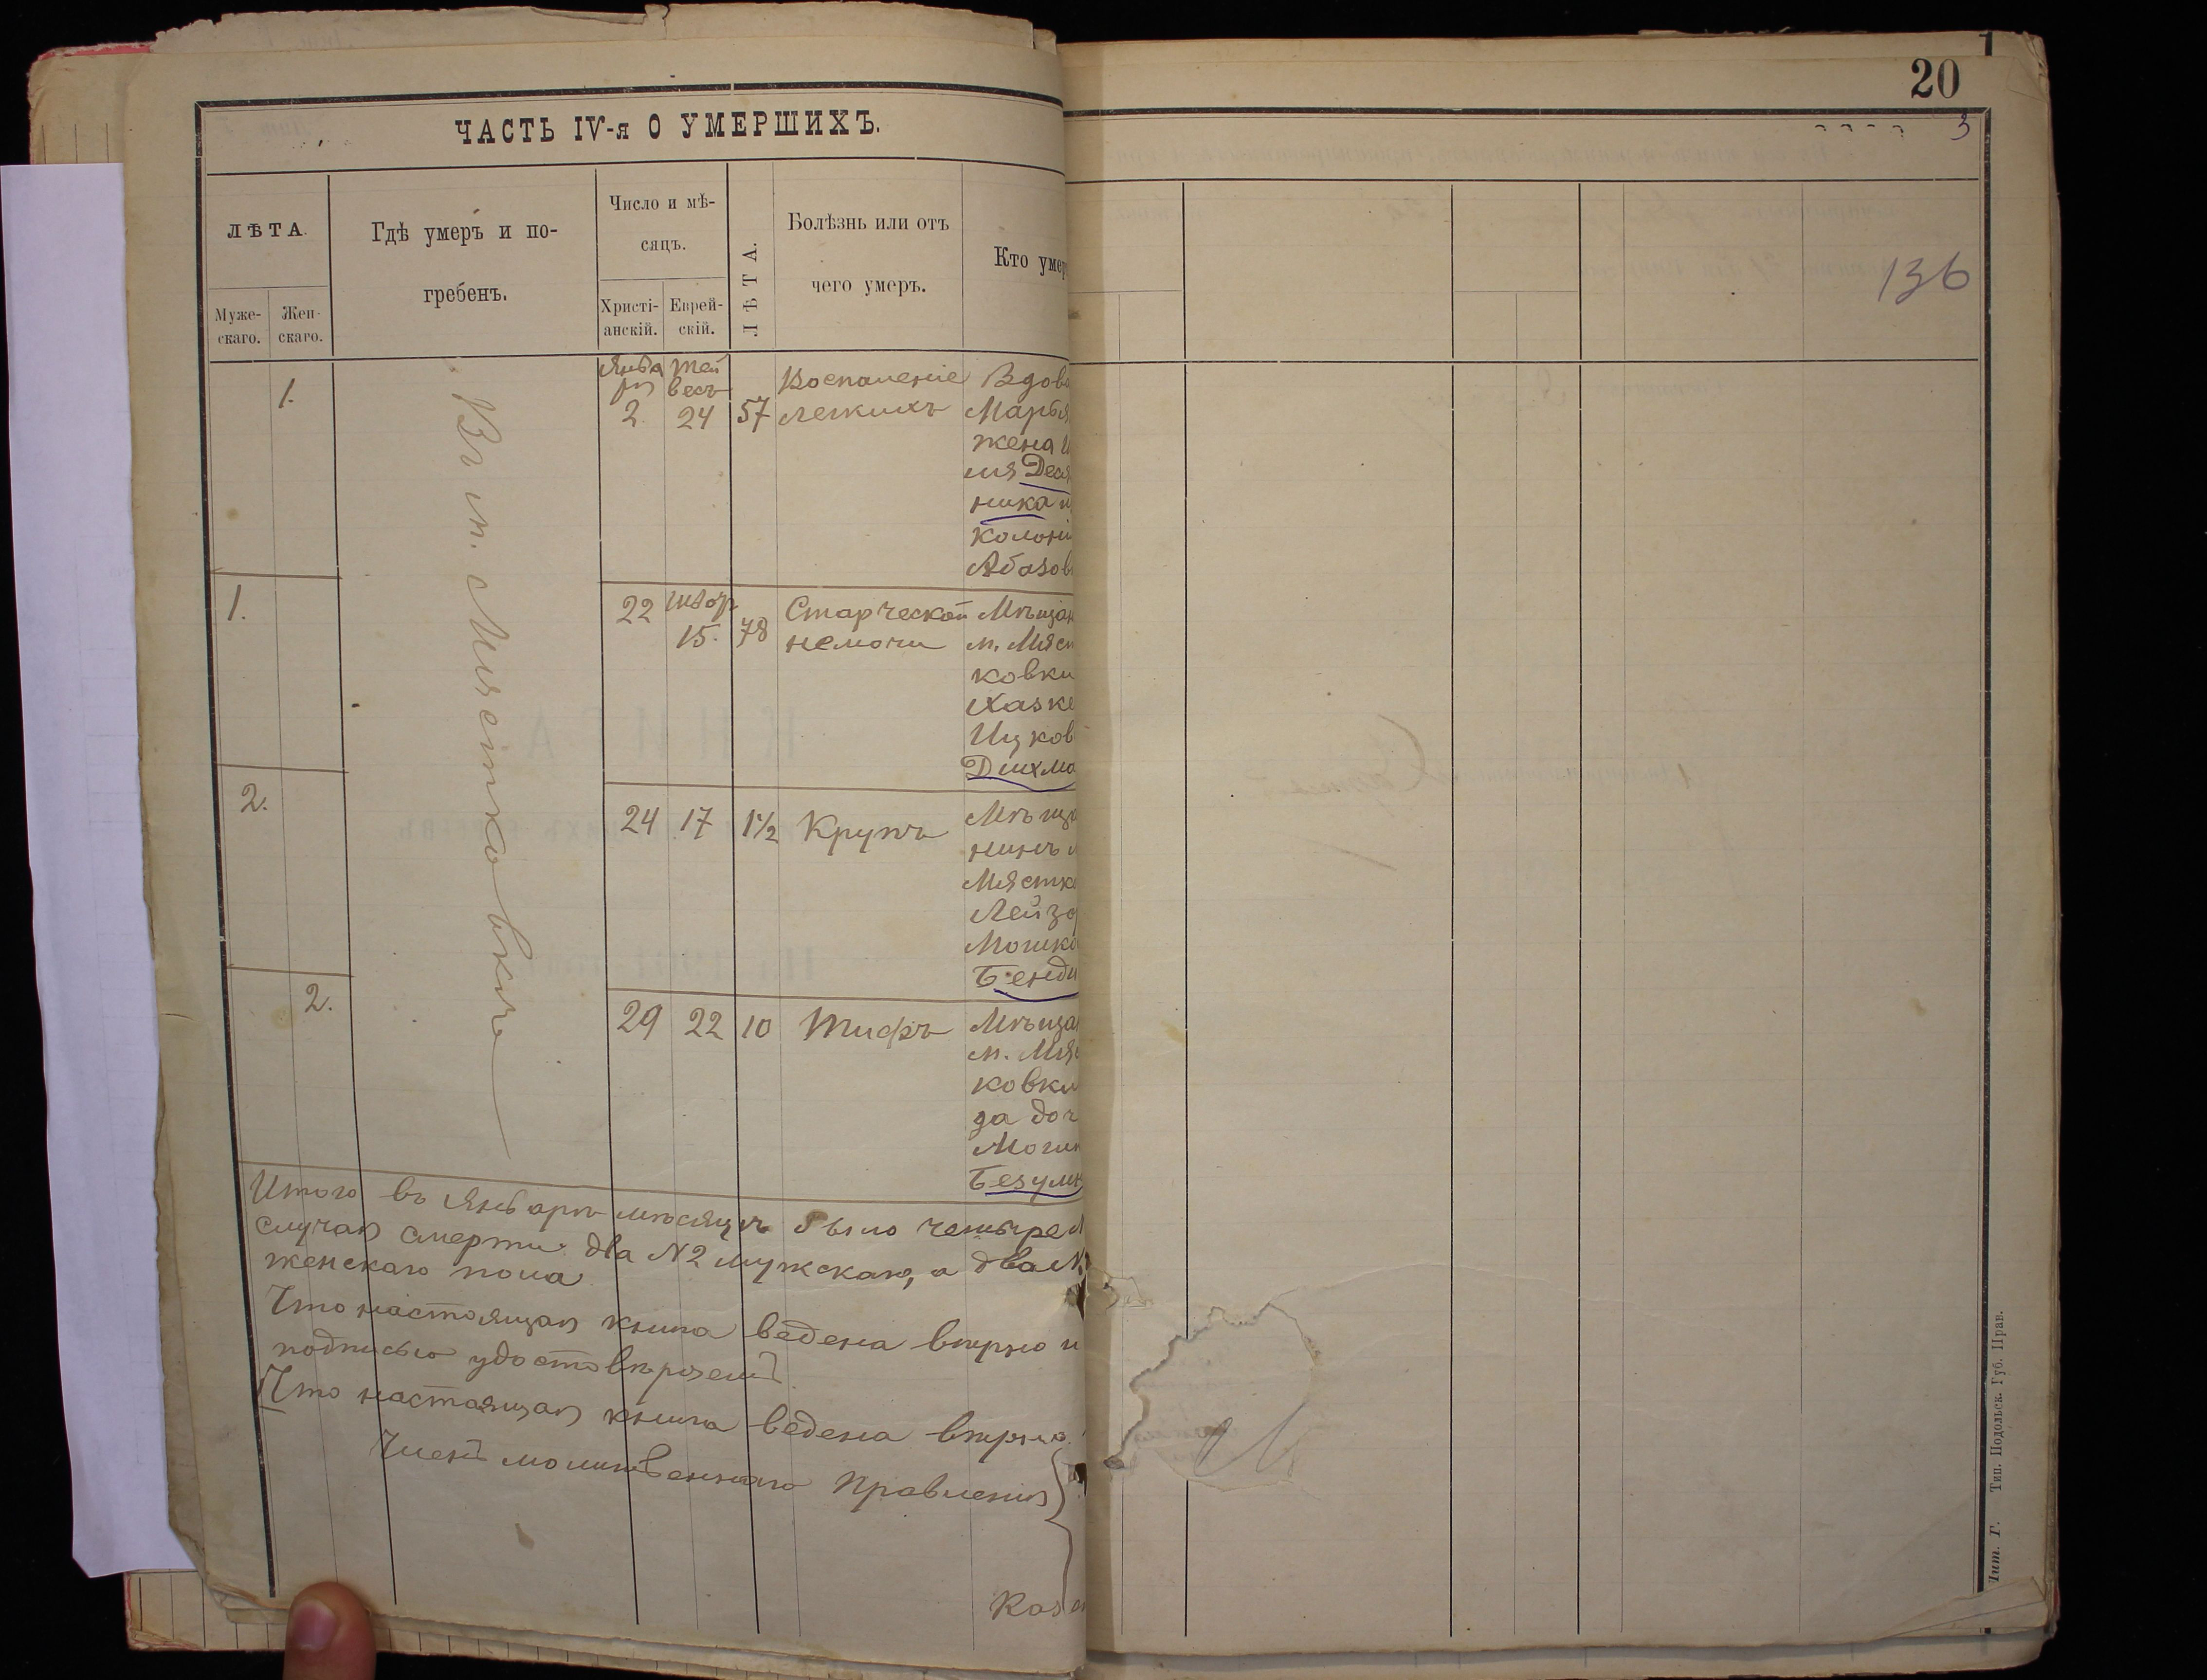 20
3
136
ЧАСТЬ IV-я О УМЕРШИХЪ.
ЛѢТА.
Муже-
скаго.
Жен-
скаго.
Гдѣ умеръ и по-
гребенъ.
Число и мѣ-
сяцъ.
Христі-
анскій.
Еврей-
скій.
ЛѢТА.
Болѣзнь или отъ
чего умеръ.
Кто умер
Въ м. Мястковкѣ
1.
Янва
ря
2.
Тей
весъ
24
57
Воспаленіе
легкихъ
Вдова
Марья
жена И
ля Деся
ника и
колоніи
Абазов
1.
22
Швор
15.
78
Старческой
немочи
Мѣщан
м. Мяст
ковки
Хаske
Ицков
Дихма
2.
24
17
1½
Крупъ
Мѣща
нинъ м
Мястко
Лейзо
Мошко
Бенди
2.
29
22
10
Тифъ
Мѣщан
м. Мяс
ковки
да доч
Мошк
Безумн
Итого въ Январѣ мѣсяцѣ было четыре №
случая смерти: два №2 мужскаго, а два №
женскаго пола.
Что настоящая книга ведена вѣрно и
подписью удостовѣряемъ.
Что настоящая книга ведена вѣрно
Членъ молитвеннаго Правленія
Каз
Лит. Г. Тип. Подольск. Губ. Прав.